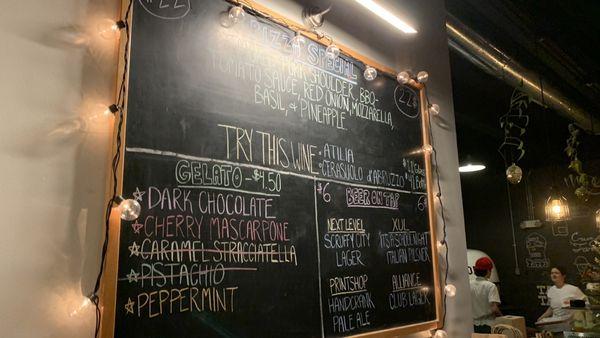 $22
PIZZA SPECIAL
SHOULDER, BBQ
TOMATO SAUCE, RED ONION, MOZZARELLA,
BASIL, & PINEAPPLE
22
TRY THIS WINE: ATILIA
CERASUOLO d'ABRUZZO
GELATO - $4.50
DARK CHOCOLATE
CHERRY MASCARPONE
CARAMEL STRACCIATELLA
PISTACHIO
PEPPERMINT
$6 BEER ON TAP 6
NEXT LEVEL
SCRUFFY CITY
LAGER
XUL
ITALIAN PILSNER
PRINTSHOP
HANDCRANK
PALE ALE
ALLIANCE
CLUB LAGER